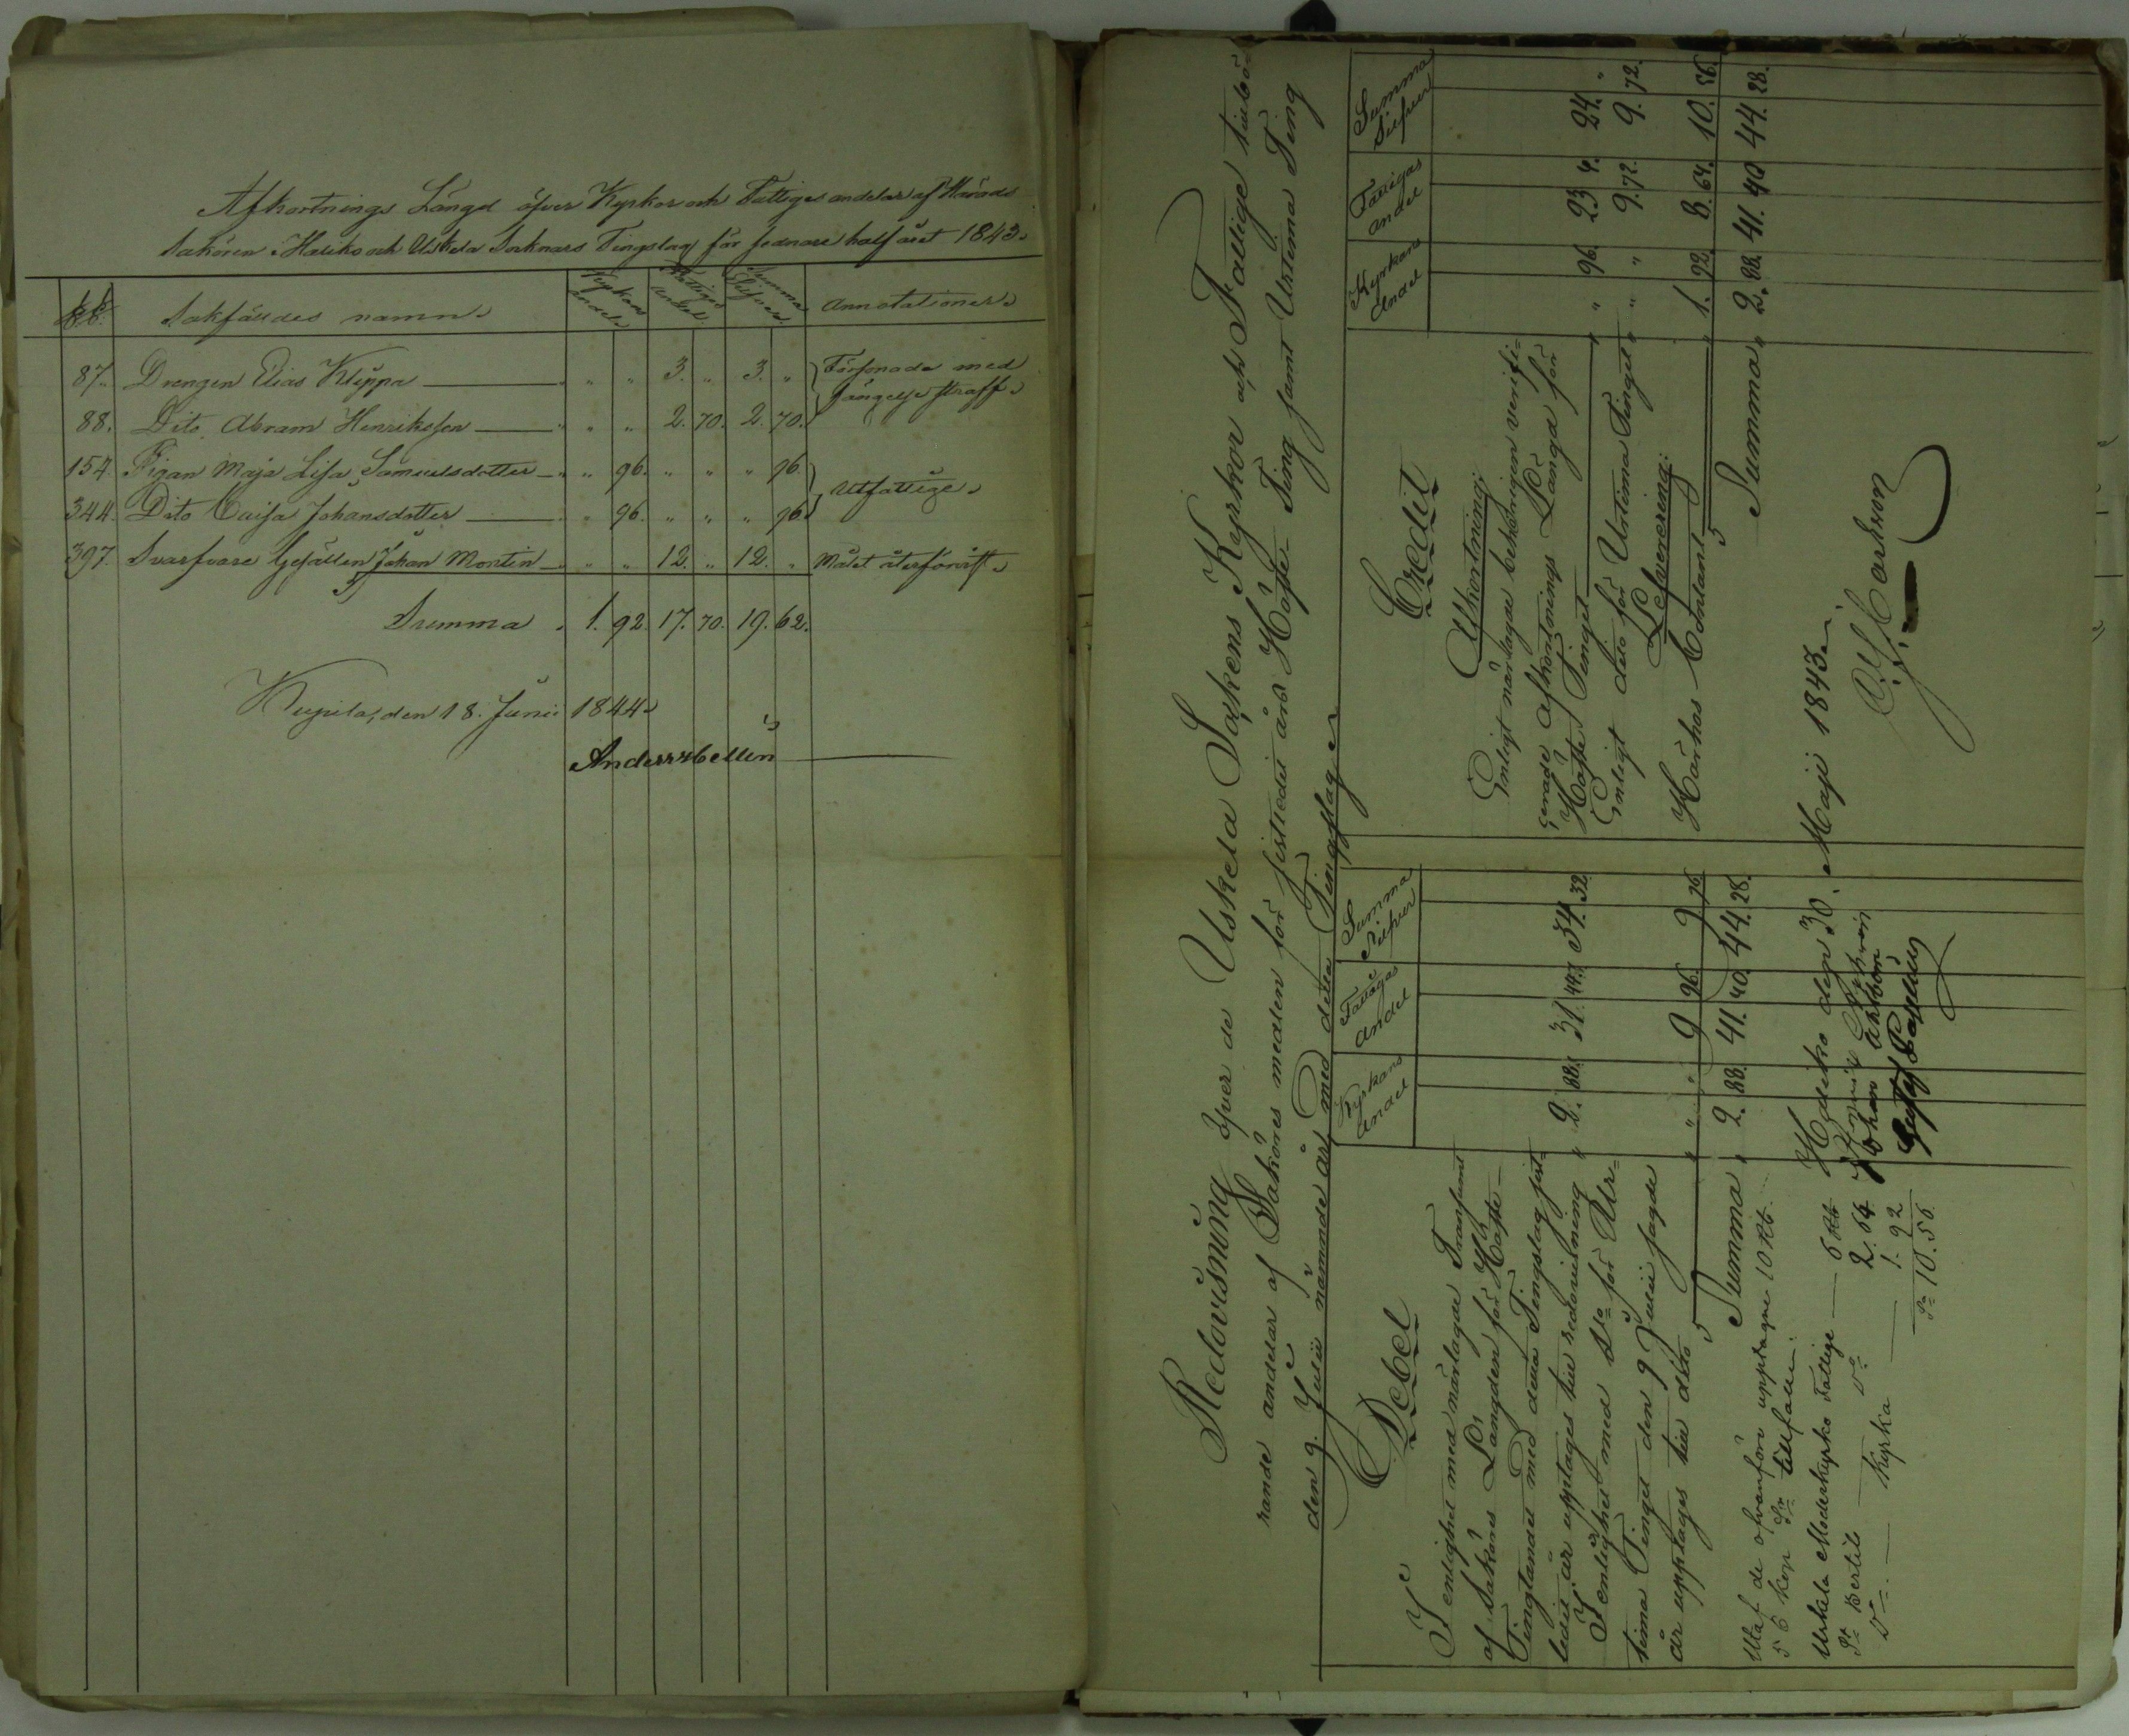 Afkortnings Längd öfver Kyrkor och Fattiges andelar af Härads
Sakören i Haliko och Uskela Socknars Tingslag för sednare halfåret 1843.
Sakfäldes namn. Kyrkans andel. Fattiges andel. Summa Silfver. Annotationer.
87. Drengen Elias Kleppa " " 3. " 3. " Försonade med
fängelse straff.
88. Dito Abram Henriksson " " 2. 70. 2. 70.
154. Pigan Maja Lisa Samuelsdotter " 96. " " " 96. Utfattige.
344. Dito Caisa Johansdotter " 96. " " " 96.
397. Svarfvare Gesällen Johan Montin " " 12. " 12. " Målet återförvist.
Summa. 1. 92. 17. 70. 19. 62.
den 18. Junii 1844.
Anders Hellen
Redovisning öfver de Uskela Sockens Kyrkor och Fattige tillhö-
rande andelar af Saköres medlen för sistledit års Höste Ting samt Urtima Ting
den 9. Julii nämnde år med detta Tingslag.
Debet
Kyrkans Andel Fattigas Andel Summa Silfver
I enlighet med närlagde Transsumt
af Saköres Längden för Höste-
Tinglandet med detta Tingslag sist-
ledit år upptages till redovisning " 2. 88. 31. 44. 34. 32.
I enlighet med Dito för Ur-
tima Tinget den 9 Julii sagde
år upptages till dito " " " 9 96. 9 96.
Summa " 2. 88. 41. 40. 44. 28.
Utaf de ofvanföre upptagne 10 Rb.
56 kop. Sr tillfaller
Uskela Moderkyrko Fattige — 6 Rb
Dr Bertils Do 2. 64
Do — Kyrka — 1. 92
Sr 10. 56.
Credit
Kyrkans Andel Fattigas Andel Summa Silfver
Afkortning:
Enligt närlagde behörigen verifi-
cerade Afkortnings Längd för
Höste Tinget " " 96. 23 4. 24. "
Enligt dito för Urtima Tinget " " " 9. 72. 9. 72.
Lefverering:
Härhos Contant " 1. 92. 8. 64. 10. 56.
Summa " 2. 88. 41. 40 44. 28.
Haliko den 30. Maji 1843.
Johan Ahlbom
Gustaf